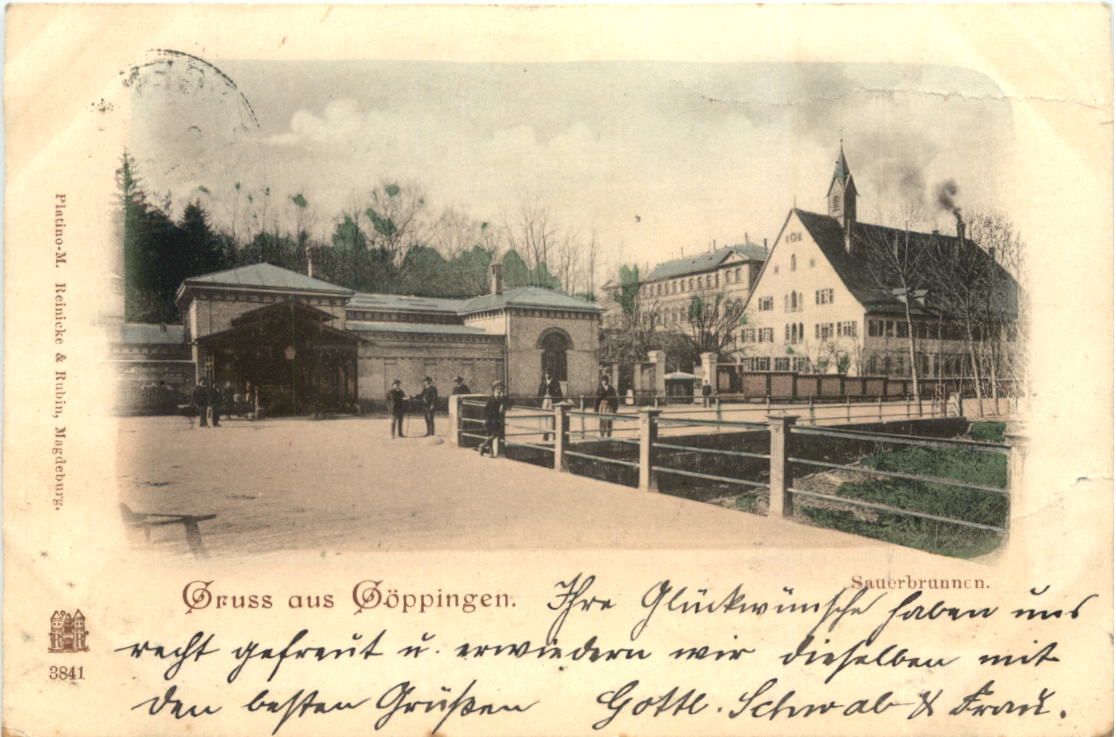 Platino-M. Reinicke & Rubin, Magdeburg.
Sauerbrunnen.
Gruss aus Göppingen.
Ihre Glückwünsche haben uns
recht gefreut u. erwiedern wir dieselben mit
den besten Grüßen Gottl. Schwab & Frau.
R R
3841